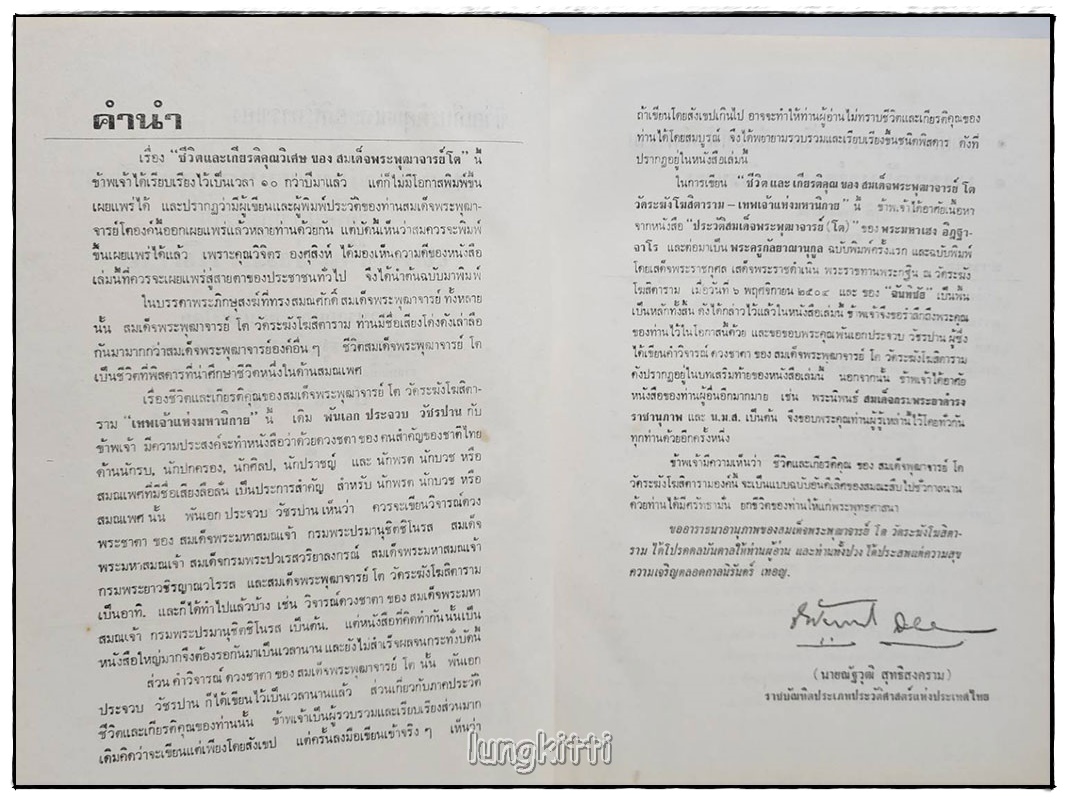 คำนำ
เรื่อง "ชีวิตและเกียรติคุณวิเศษ ของ สมเด็จพระพุฒาจารย์โต" นี้
ข้าพเจ้าได้เรียบเรียงไว้เป็นเวลา ๑๐ กว่าปีมาแล้ว แต่ก็ไม่มีโอกาสพิมพ์ขึ้น
เผยแพร่ได้ และปรากฏว่ามีผู้เขียนและผู้พิมพ์ประวัติของท่านสมเด็จพระพุฒา-
จารย์โตองค์นี้ออกเผยแพร่แล้วหลายท่านด้วยกัน แต่บัดนี้เห็นว่าสมควรจะพิมพ์
ขึ้นเผยแพร่ได้แล้ว เพราะคุณวิจิตร องศุสิงห์ ได้มองเห็นความดีของหนังสือ
เล่มนี้ที่ควรจะเผยแพร่สู่สายตาของประชาชนทั่วไป จึงได้นำต้นฉบับมาพิมพ์
ในบรรดาพระภิกษุสงฆ์ที่ทรงสมณศักดิ์ สมเด็จพระพุฒาจารย์ ทั้งหลาย
นั้น สมเด็จพระพุฒาจารย์ โต วัดระฆังโฆสิตาราม ท่านมีชื่อเสียงโด่งดังเล่าลือ
กันมามากกว่าสมเด็จพระพุฒาจารย์องค์อื่น ๆ ชีวิตสมเด็จพระพุฒาจารย์ โต
เป็นชีวิตที่พิสดารที่น่าศึกษาชีวิตหนึ่งในด้านสมณเพศ
เรื่องชีวิตและเกียรติคุณของสมเด็จพระพุฒาจารย์ โต วัดระฆังโฆสิตา-
ราม "เทพเจ้าแห่งมหานิกาย" นี้ เดิม พันเอก ประจวบ วัชรปาน กับ
ข้าพเจ้า มีความประสงค์จะทำหนังสือว่าด้วยดวงชตา ของ คนสำคัญของชาติไทย
ด้านนักรบ, นักปกครอง, นักศิลป, นักปราชญ์ และ นักพรต นักบวช หรือ
สมณเพศที่มีชื่อเสียงลือลั่น เป็นประการสำคัญ สำหรับ นักพรต นักบวช หรือ
สมณเพศ นั้น พันเอก ประจวบ วัชรปาน เห็นว่า ควรจะเขียนวิจารณ์ดวง
พระชาตา ของ สมเด็จพระมหาสมณเจ้า กรมพระปรมานุชิตชิโนรส สมเด็จ
พระมหาสมณเจ้า สมเด็จกรมพระปวเรสวริยาลงกรณ์ สมเด็จพระมหาสมณเจ้า
กรมพระยาวชิรญาณวโรรส และสมเด็จพระพุฒาจารย์ โต วัดระฆังโฆสิตาราม
เป็นอาทิ. และก็ได้ทำไปแล้วบ้าง เช่น วิจารณ์ดวงชาตา ของ สมเด็จพระมหา
สมณเจ้า กรมพระปรมานุชิตชิโนรส เป็นต้น. แต่หนังสือที่คิดทำกันนั้นเป็น
หนังสือใหญ่มากจึงต้องรอกันมาเป็นเวลานาน และยังไม่สำเร็จผลจนกระทั่งบัดนี้
ส่วน คำวิจารณ์ ดวงชาตา ของ สมเด็จพระพุฒาจารย์ โต นั้น พันเอก
ประจวบ วัชรปาน ก็ได้เขียนไว้เป็นเวลานานแล้ว ส่วนเกี่ยวกับภาคประวัติ
ชีวิตและเกียรติคุณของท่านนั้น ข้าพเจ้าเป็นผู้รวบรวมและเรียบเรียงส่วนมาก
เดิมคิดว่าจะเขียนแต่เพียงโดยสังเขป แต่ครั้นลงมือเขียนเข้าจริง ๆ เห็นว่า
ถ้าเขียนโดยสังเขปเกินไป อาจจะทำให้ท่านผู้อ่านไม่ทราบชีวิตและเกียรติคุณของ
ท่านได้โดยสมบูรณ์ จึงได้พยายามรวบรวมและเรียบเรียงขึ้นชนิดพิสดาร ดังที่
ปรากฏอยู่ในหนังสือเล่มนี้
ในการเขียน "ชีวิต และ เกียรติคุณ ของ สมเด็จพระพุฒาจารย์ โต
วัดระฆังโฆสิตาราม – เทพเจ้าแห่งมหานิกาย" นี้ ข้าพเจ้าได้อาศัยเนื้อหา
จากหนังสือ "ประวัติสมเด็จพระพุฒาจารย์ (โต)" ของ พระมหาเฮง อิฏฐา-
จาโร และต่อมาเป็น พระครูกัลยาณานุกูล ฉบับพิมพ์ครั้งแรก และฉบับพิมพ์
โดยเสด็จพระราชกุศล เสด็จพระราชดำเนิน พระราชทานพระกฐิน ณ วัดระฆัง
โฆสิตาราม เมื่อวันที่ ๖ พฤศจิกายน ๒๕๐๔ และ ของ "ฉันทิชัย" เป็นพื้น
เป็นหลักทั้งสิ้น ดังได้กล่าวไว้แล้วในหนังสือเล่มนี้ ข้าพเจ้าจึงขอรำลึกถึงพระคุณ
ของท่านไว้ในโอกาสนี้ด้วย และขอขอบพระคุณพันเอกประจวบ วัชรปาน ผู้ซึ่ง
ได้เขียนคำวิจารณ์ ดวงชาตา ของ สมเด็จพระพุฒาจารย์ โต วัดระฆังโฆสิตาราม
ดังปรากฏอยู่ในบทเสริมท้ายของหนังสือเล่มนี้ นอกจากนั้น ข้าพเจ้าได้อาศัย
หนังสือของท่านผู้อื่นอีกมากมาย เช่น พระนิพนธ์ สมเด็จกรมพระยาดำรง
ราชานุภาพ และ น.ม.ส. เป็นต้น จึงขอบพระคุณท่านผู้รู้เหล่านี้ไว้โดยทั่วกัน
ทุกท่านด้วยอีกครั้งหนึ่ง
ข้าพเจ้ามีความเห็นว่า ชีวิตและเกียรติคุณ ของ สมเด็จพุฒาจารย์ โต
วัดระฆังโฆสิตารามองค์นี้ จะเป็นแบบฉบับอันดีเลิศของสมณะสืบไปชั่วกาลนาน
ด้วยท่านได้มีศรัทธามั่น ยกชีวิตของท่านให้แก่พระพุทธศาสนา
ขออาราธนาอานุภาพของสมเด็จพระพุฒาจารย์ โต วัดระฆังโฆสิตา-
ราม ได้โปรดดลบันดาลให้ท่านผู้อ่าน และท่านทั้งปวง ได้ประสพแต่ความสุข
ความเจริญตลอดกาลนิรันดร์ เทอญ.
(นายณัฐวุฒิ สุทธิสงคราม)
ราชบัณฑิตประเภทประวัติศาสตร์แห่งประเทศไทย
lungkitti